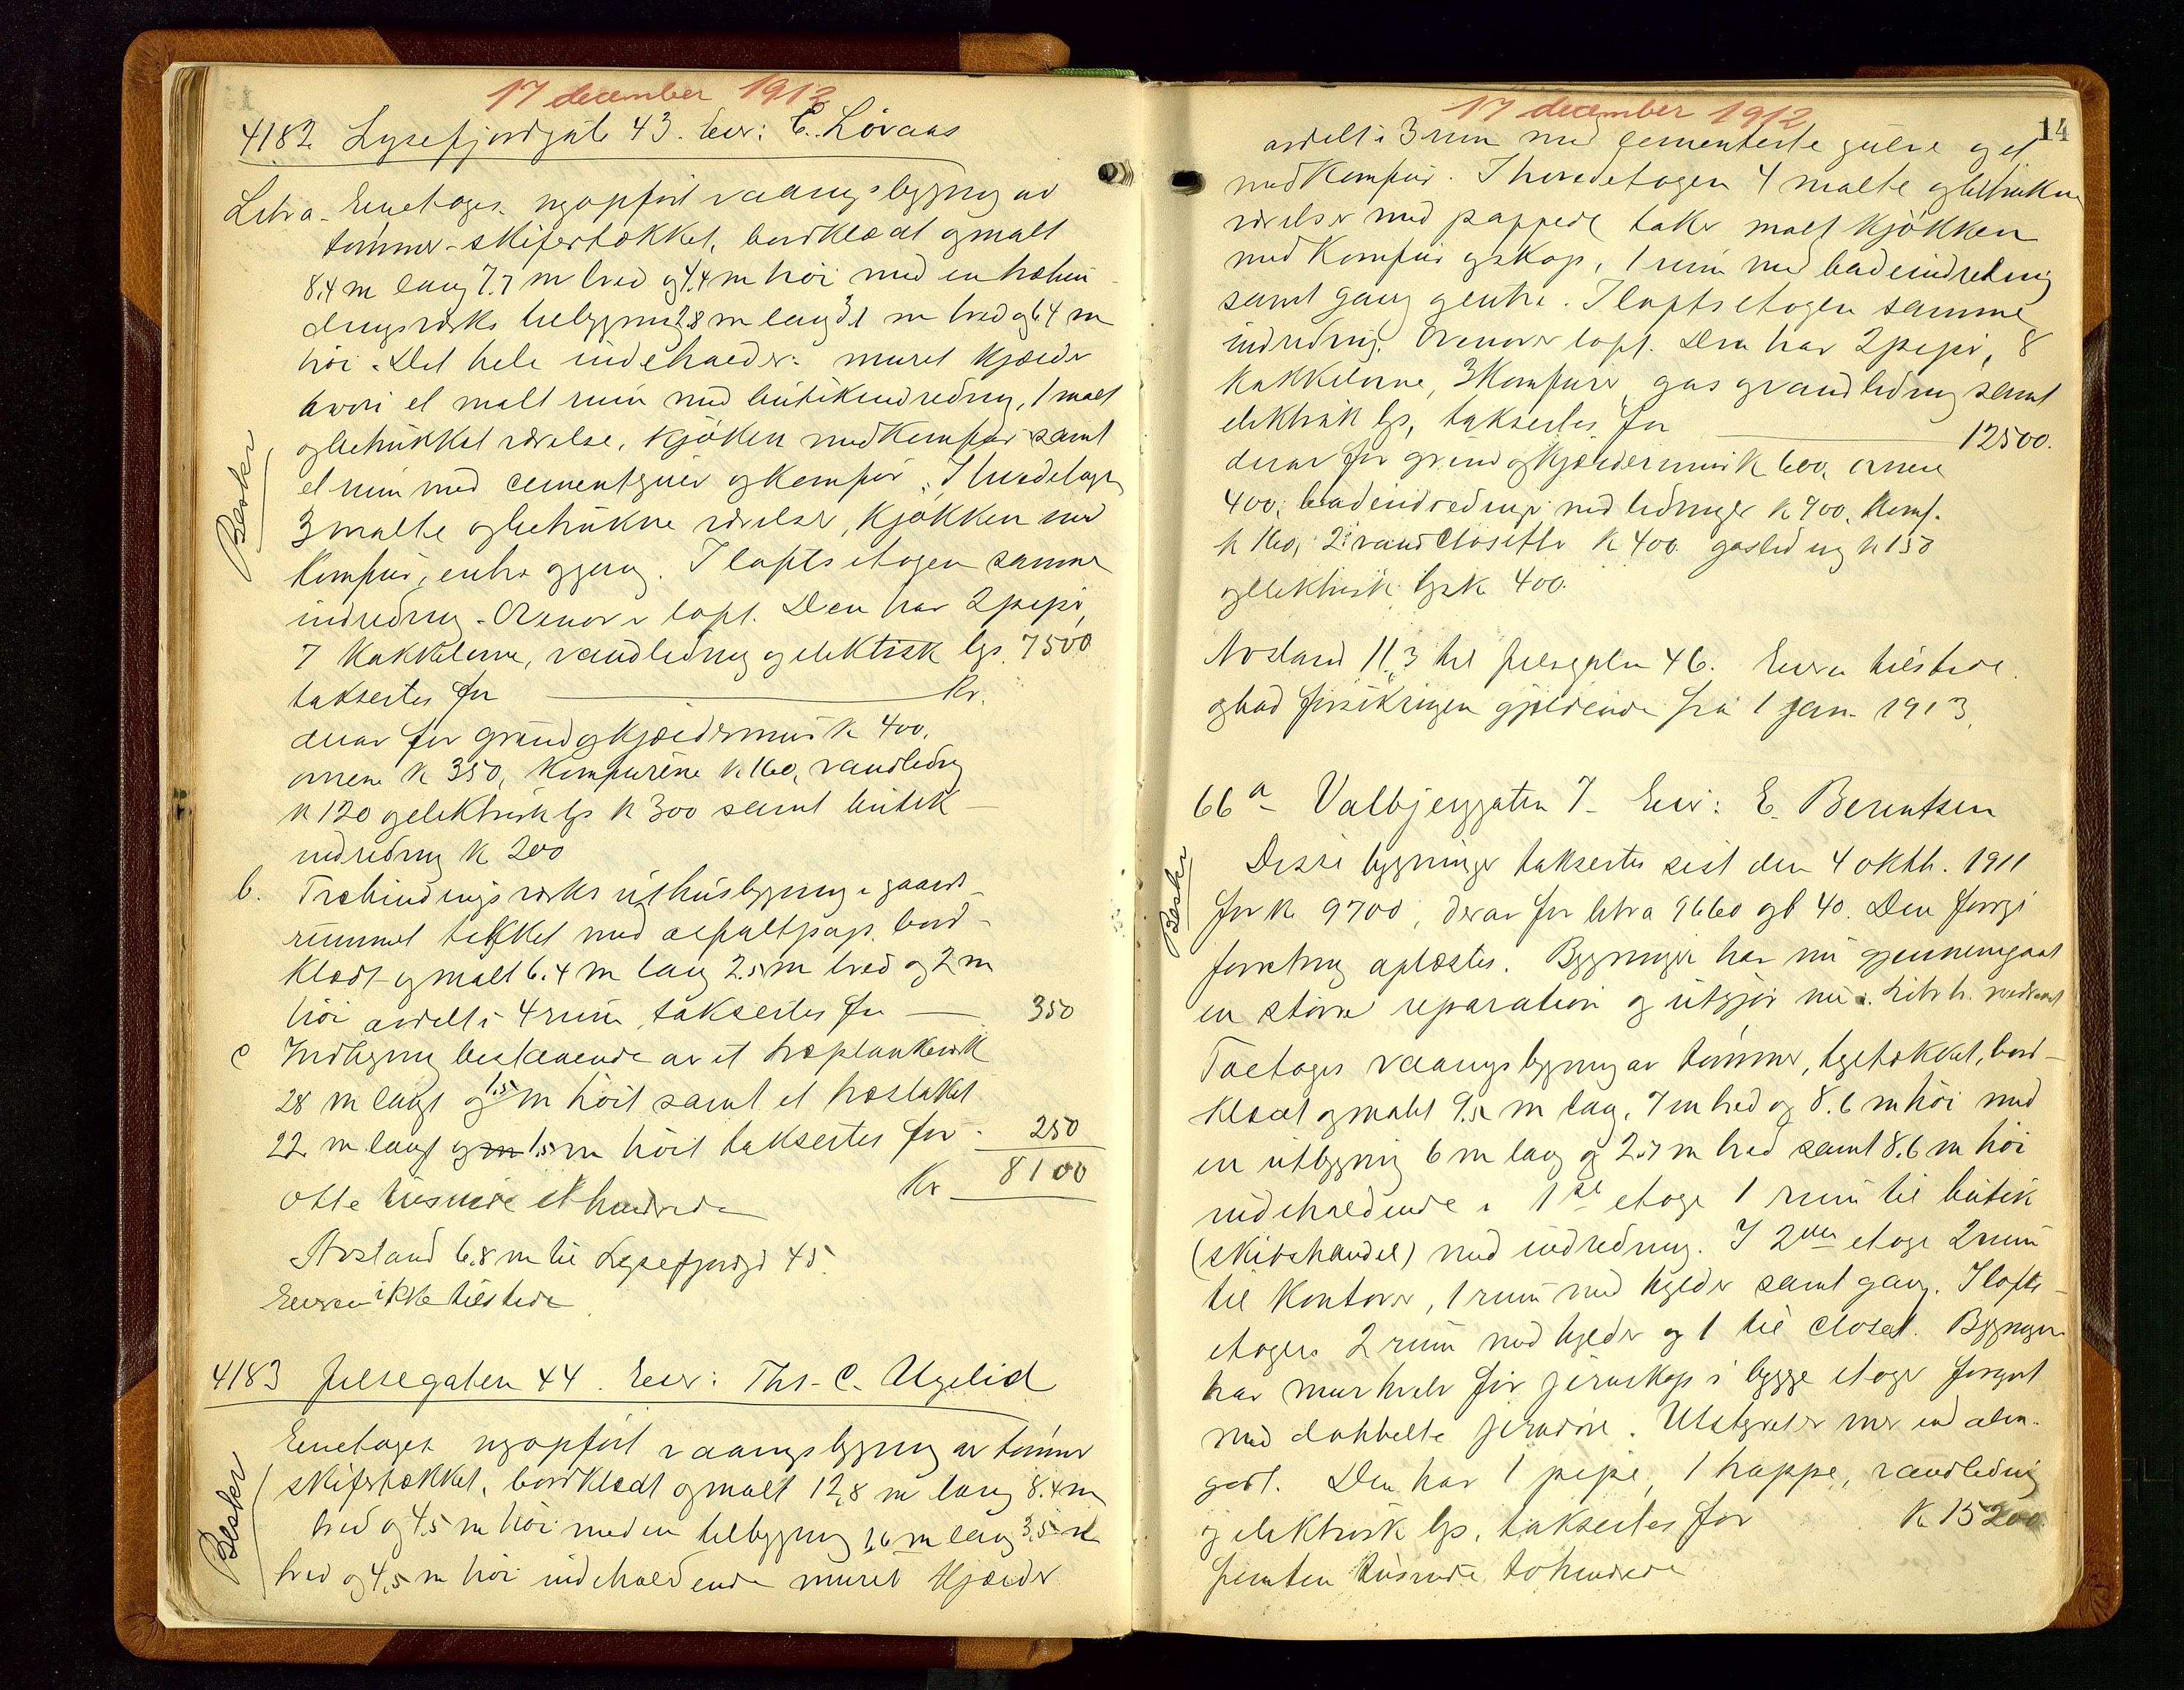 17 december 1912
4182 Lysefjordgate 43. Eier: E. Lövaas
Litra Enetages nyopført vaaningsbygning av
tømmer - skifertækket, bordklædt og malt
8,4 m lang 7.7 m bred og 4.4 m høi med en træbin
dingsværks tilbygning 2,8 m lang 3,1 m bred og 6.4 m
høi. Det hele indeholder: muret kjælder
hvori et malt rum med butikindredning, 1 malt
og betrukket værelse, kjøkken med komfur samt
et rum med cementgulv og komfur. I hovedetagen
3 malte og betrukne værelser, kjøkken med
komfur, entre og gang. I loftsetagen samme
indredning. Ovenover loft. Den har 2 piper,
7 kakkelovne, vandledning og elektrisk lys. 7500
taksertes for Kr.
derav for grund og kjældermur k 400.
ovnene k 350, komfurene k 160, vandledning
k 120 og elektrisk lys k 300 samt butik
indredning k 200
Beskr
b. Træbindingsværks uthusbygning i gaards-
rummet tækket med asfaltpap, bord-
klædt og malt 6.4 m lang 2.5 m bred og 2 m
høi avdelt i 4 rum, taksertes for 350
c Indhegning bestaaende av et træplankeværk
28 m langt og 1.5 m høit samt et træstaket
22 m langt og m 1.5 m høit taksertes for 250
Kr 8100
Otte tusinde et hundrede
Avstand 6,8 m til Lysefjordgt 45.
Eieren ikke tilstede
4183 Jelsegaten 44. Eier: Ths. C. Ugelid
Beskr
Enetages nyopført vaaningsbygning av tømmer
skifertækket, bordklædt og malt 12,8 m lang 8.4 m
bred og 4.5 m høi med en tilbygning 1,6 m lang 3,5 m
bred og 4.5 m høi indeholdende muret kjælder
17 december 1912
14
avdelt i 3 rum med cementerte gulve og et
med komfur. I hovedetagen 4 malte og betrukne
værelser med pappede taker malt kjøkken
med komfur og skap, 1 rum med badeindredning
samt gang og entre. I loftsetagen samme
indredning. Ovenover loft. Den har 2 piper, 8
kakkelovne, 3 komfurer, gas og vandledning samt
elektrisk lys, taksertes for 12500.
derav for grund og kjældermur k 600, ovnene
400, badeindredning med ledninger k 900, komf.
k 160, 2 vandclosetter k 400 gasledning k 150
og elektrisk lys k 400.
Avstand 11,3 til Jelsegaten 46. Eieren tilstede.
og bad forsikringen gjældende fra 1 jan. 1913.
66a Valbjerggaten 7. Eier: E. Berentsen
Beskr
Disse bygninger taksertes sist den 4 oktb. 1911
for k 9700, derav for litra 9660 og b 40. Den forrige
forretning oplæstes. Bygningen har nu gjennemgaat
en større reparation og utgjør nu: Litr b. nedrevet
Toetages vaaningsbygning av tømmer, tegltækket, bord-
klædt og malt 9.5 m lang, 7 m bred og 8.6 m høi med
en utbygning 6 m lang og 2.7 m bred samt 8.6 m høi
indeholdende i 1ste etage 1 rum til butik
(skibshandel) med indredning. I 2den etage 2 rum
til kontorer, 1 rum med hylder samt gang. I lofts-
etagen 2 rum med hylder og 1 til closet. Bygningen
har murhvelv for jernskap i begge etager forsynt
med dobbelte jerndøre. Utstyret er mer end alm.
godt. Den har 1 pipe, 1 trappe, vandledning
og elektrisk lys, taksertes for k 15200
femten tusinde tohundrede